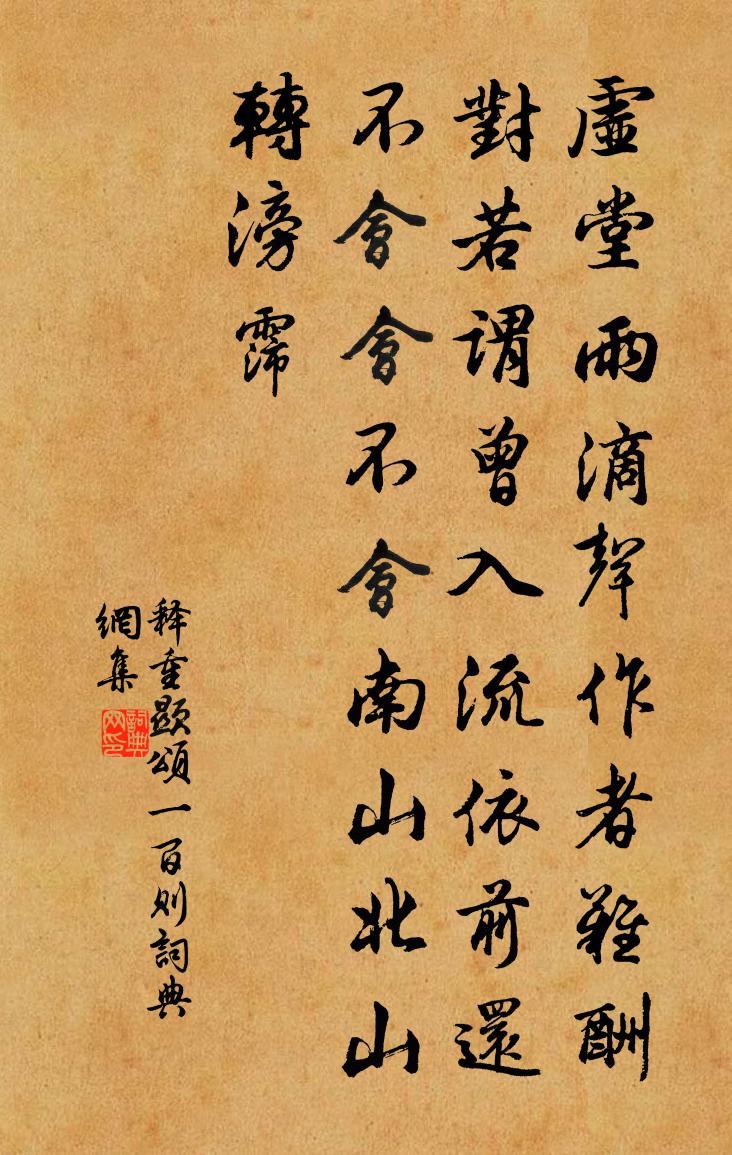 虛堂雨滴聲作者難酬
對若謂曾入流依前還
不會會不會南山北山
轉滂霈
释重顯頌一百则詞典
網集
詞典网印